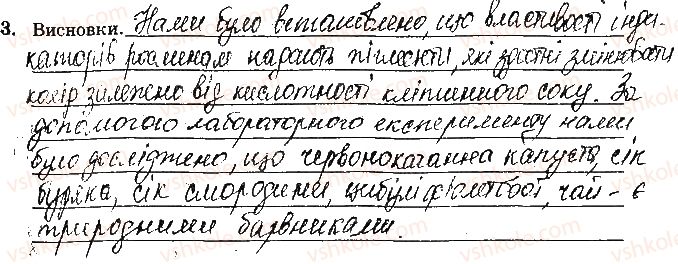 3. Висновки. Нами було встановлено, що властивості інди-
каторів рослинам надають пігменти, які здатні змінювати
колір залежно від кислотності клітинного соку. За
допомогою лабораторного експерименту нами
було досліджено, що червонокачанна капуста, сік
буряка, сік смородини, цибулі фіолетової, чай - є
природними барвниками.